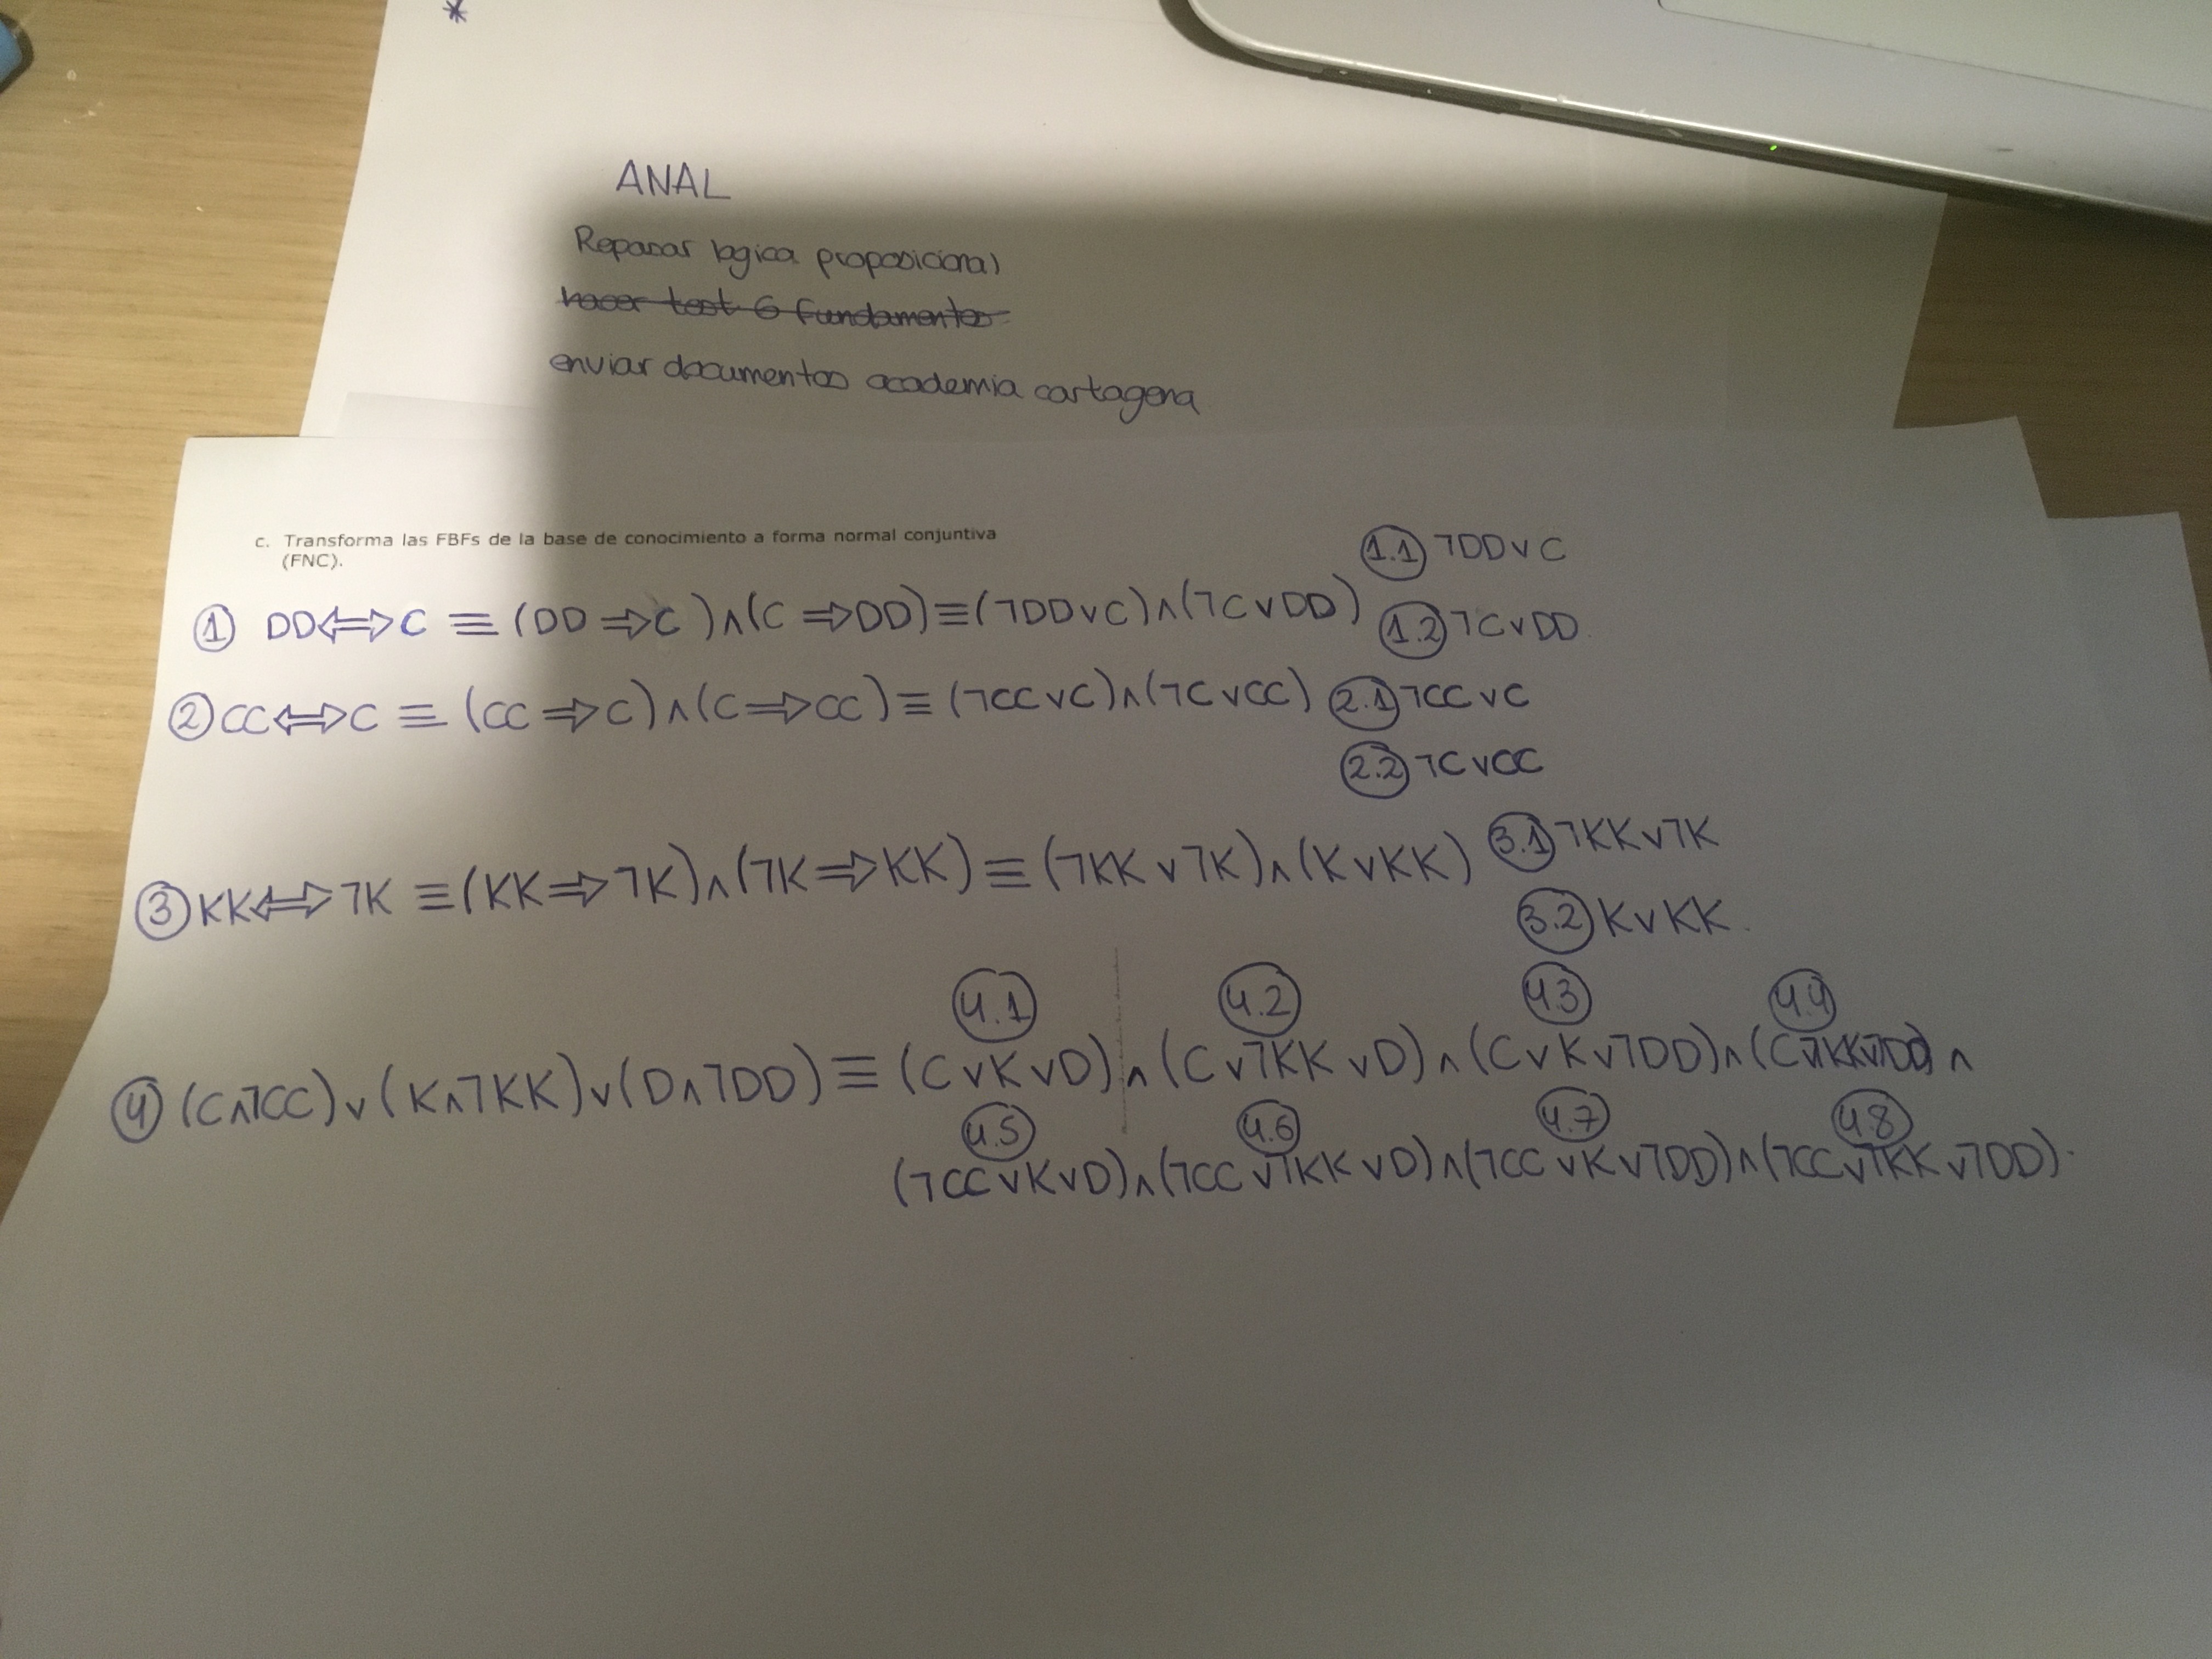 *
ANAL
Repasar logica proposicional
hacer test 6 fundamentos
enviar documentos academia cartagena
c. Transforma las FBFs de la base de conocimiento a forma normal conjuntiva
(FNC).
① DD⟺C ≡ (DD ⇒ C)∧(C ⇒ DD)≡(¬DD∨C)∧(¬C∨DD)
1.1 ¬DD∨C
1.2 ¬C∨DD
② CC⟺C ≡ (CC ⇒ C)∧(C ⇒ CC)≡ (¬CC∨C)∧(¬C∨CC)
2.1 ¬CC∨C
2.2 ¬C∨CC
③ KK⟺¬K ≡(KK ⇒ ¬K)∧(¬K ⇒ KK)≡(¬KK∨¬K)∧(K∨KK)
3.1 ¬KK∨¬K
3.2 K∨KK.
4.1 4.2 4.3 4.4
④ (C∧¬CC)∨(K∧¬KK)∨(D∧¬DD)≡ (C∨K∨D)∧(C∨¬KK∨D)∧(C∨K∨¬DD)∧(C∨¬KK∨¬DD)∧
4.5 4.6 4.7 4.8
(¬CC∨K∨D)∧(¬CC∨¬KK∨D)∧(¬CC∨K∨¬DD)∧(¬CC∨¬KK∨¬DD).